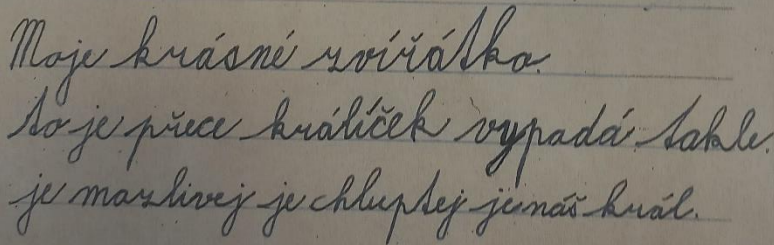 Moje krásné zvířátko.
to je přece králíček vypadá takle.
je mazlivej je chluptej je náš král.